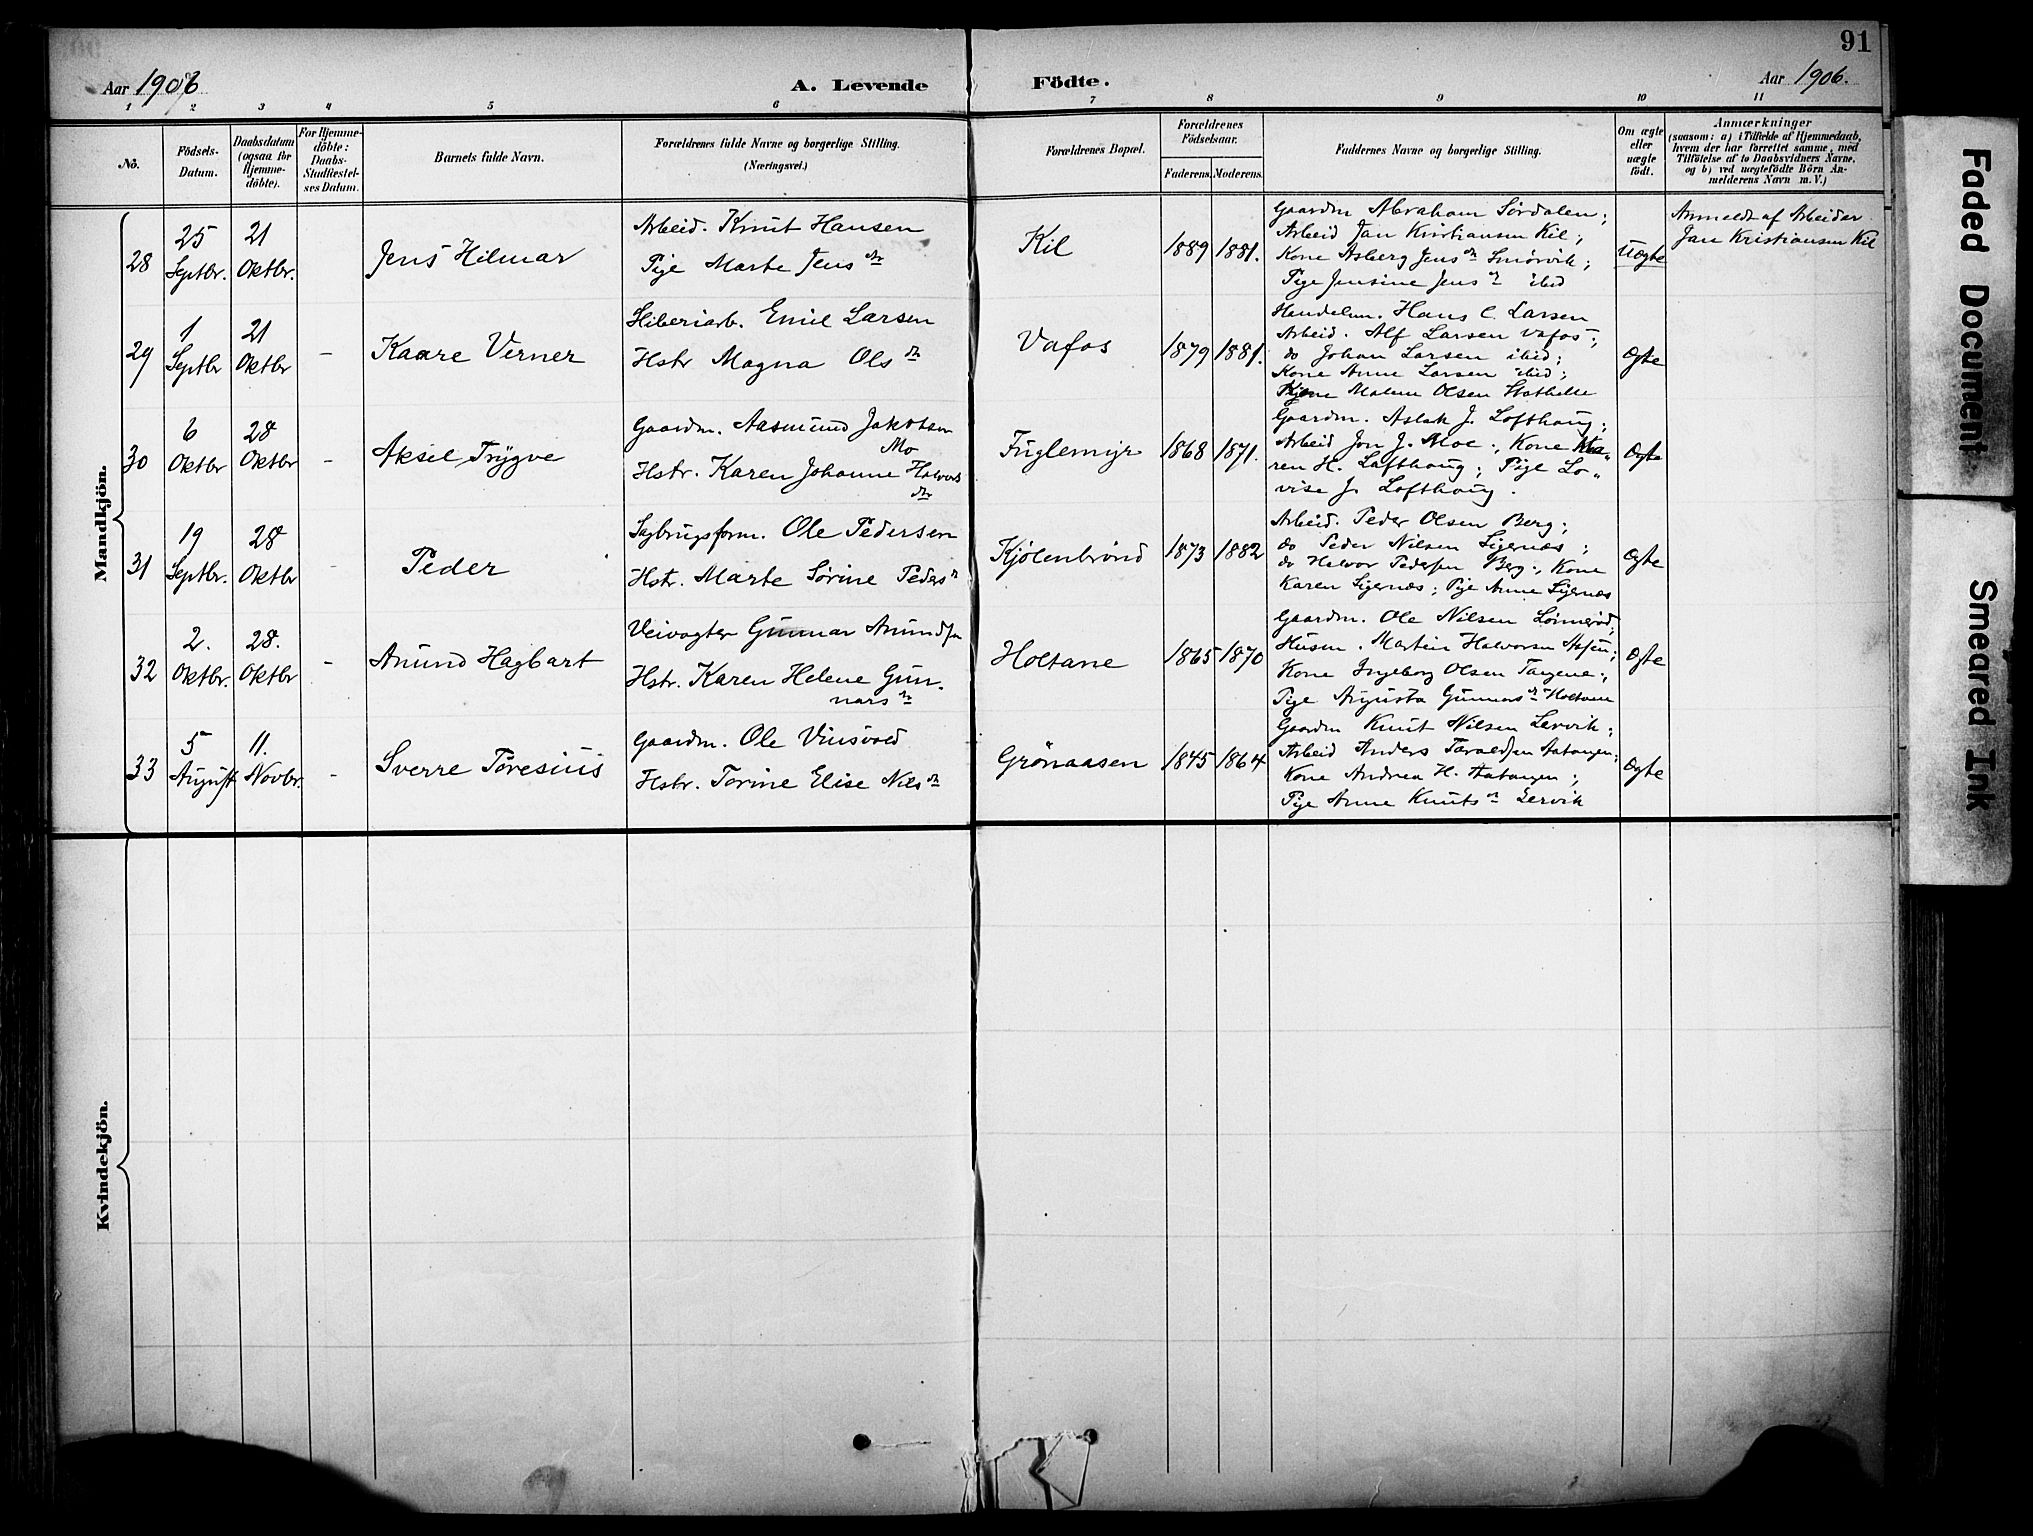 91
Aar 1906
A. Levende
Födte.
Aar 1906.
1 2 3 4 5 6 7 8 9 10 11
No.
Födsels-Datum.
Daabsdatum (ogsaa for Hjemme-döbte).
For Hjemme-döbte: Daabs-Stadfæstel-ses Datum.
Barnets fulde Navn.
Forældrenes fulde Navne og borgerlige Stilling.
(Næringsvei.)
Forældrenes Bopæl.
Forældrenes Födselsaar.
Faderens. Moderens.
Faddernes Navne og borgerlige Stilling.
Om ægte eller uægte födt.
Anmærkninger
(saasom: a) i Tilfælde af Hjemmedaab,
hvem der har forrettet samme, med
Tilföielse af to Daabsvidners Navne,
og b) ved uægtefödte Börn An-
melderens Navn m. V.)
Mandkjön.
28
25 Septbr.
21 Oktbr.
Jens Hilmar
Arbeid. Knut Hansen
Pige Marte Jens dr
Kil
1889 1881.
Gaardm Abraham Sørdalen;
Arbeid Jan Kristiansen Kil;
Kone Asberg Jens dr Smørvik;
Pige Jensine Jens dr ibid
Uægte
Anmeldt af Arbeider
Jan Kristiansen Kil
29
1 Septbr
21 Oktbr
–
Kaare Verner
Sliberiarb. Emil Larsen
Hstr Magna Ols dr
Vafos
1879 1881.
Handelsm. Hans C. Larsen
Arbeid. Alf Larsen Vafos;
do Johan Larsen ibid;
Kone Anne Larsen ibid;
Malene Olsen Stathelle
Ægte
30
6 Oktbr
28 Oktbr
–
Aksel Trygve
Gaardm. Aasmund Jakobsen
Mo
Hstr. Karen Johanne Halvors
dr
Fuglemyr
1868 1871.
Gaardm. Aslak J. Lofthaug;
Arbeid Jon J. Moe; Kone Ka-
ren H. Lofthaug; Pige Lo-
vise J. Lofthaug.
Ægte
31
19 Septbr.
28 Oktbr
–
Peder
Sagbrugsform. Ole Pedersen
Hstr. Marte Sørine Peders dr
Kjølenbrønd
1873 1882
Arbeid. Peder Olsen Berg;
do Peder Nilsen Ligernæs;
do Halvor Pedersen Berg; Kone
Karen Ligernæs; Pige Anne Ligernæs
Ægte
32
2. Oktbr.
28. Oktbr
–
Anund Hagbart
Veivogter Gunnar Anundsen
Hstr. Karen Helene Gun-
nars dr
Holtane
1865 1870
Gaardm. Ole Nilsen Lønnerød;
Husm. Martin Halvorsen Aasen;
Kone Ingeborg Olsen Tangene;
Pige Augusta Gunnars dr Holtane
Ægte
33
5 August
11. Novbr.
–
Sverre Toresius
Gaardm. Ole Vinsvold
Hstr. Torine Elise Nils dr
Grønaasen
1845 1864
Gaardm Knut Nilsen Lervik;
Arbeid Anders Taraldsen Aatangen;
Kone Andrea H. Aatangen;
Pige Anne Knuts dr Lervik
Ægte
Kvindekjön.
Faded Document
Smeared Ink